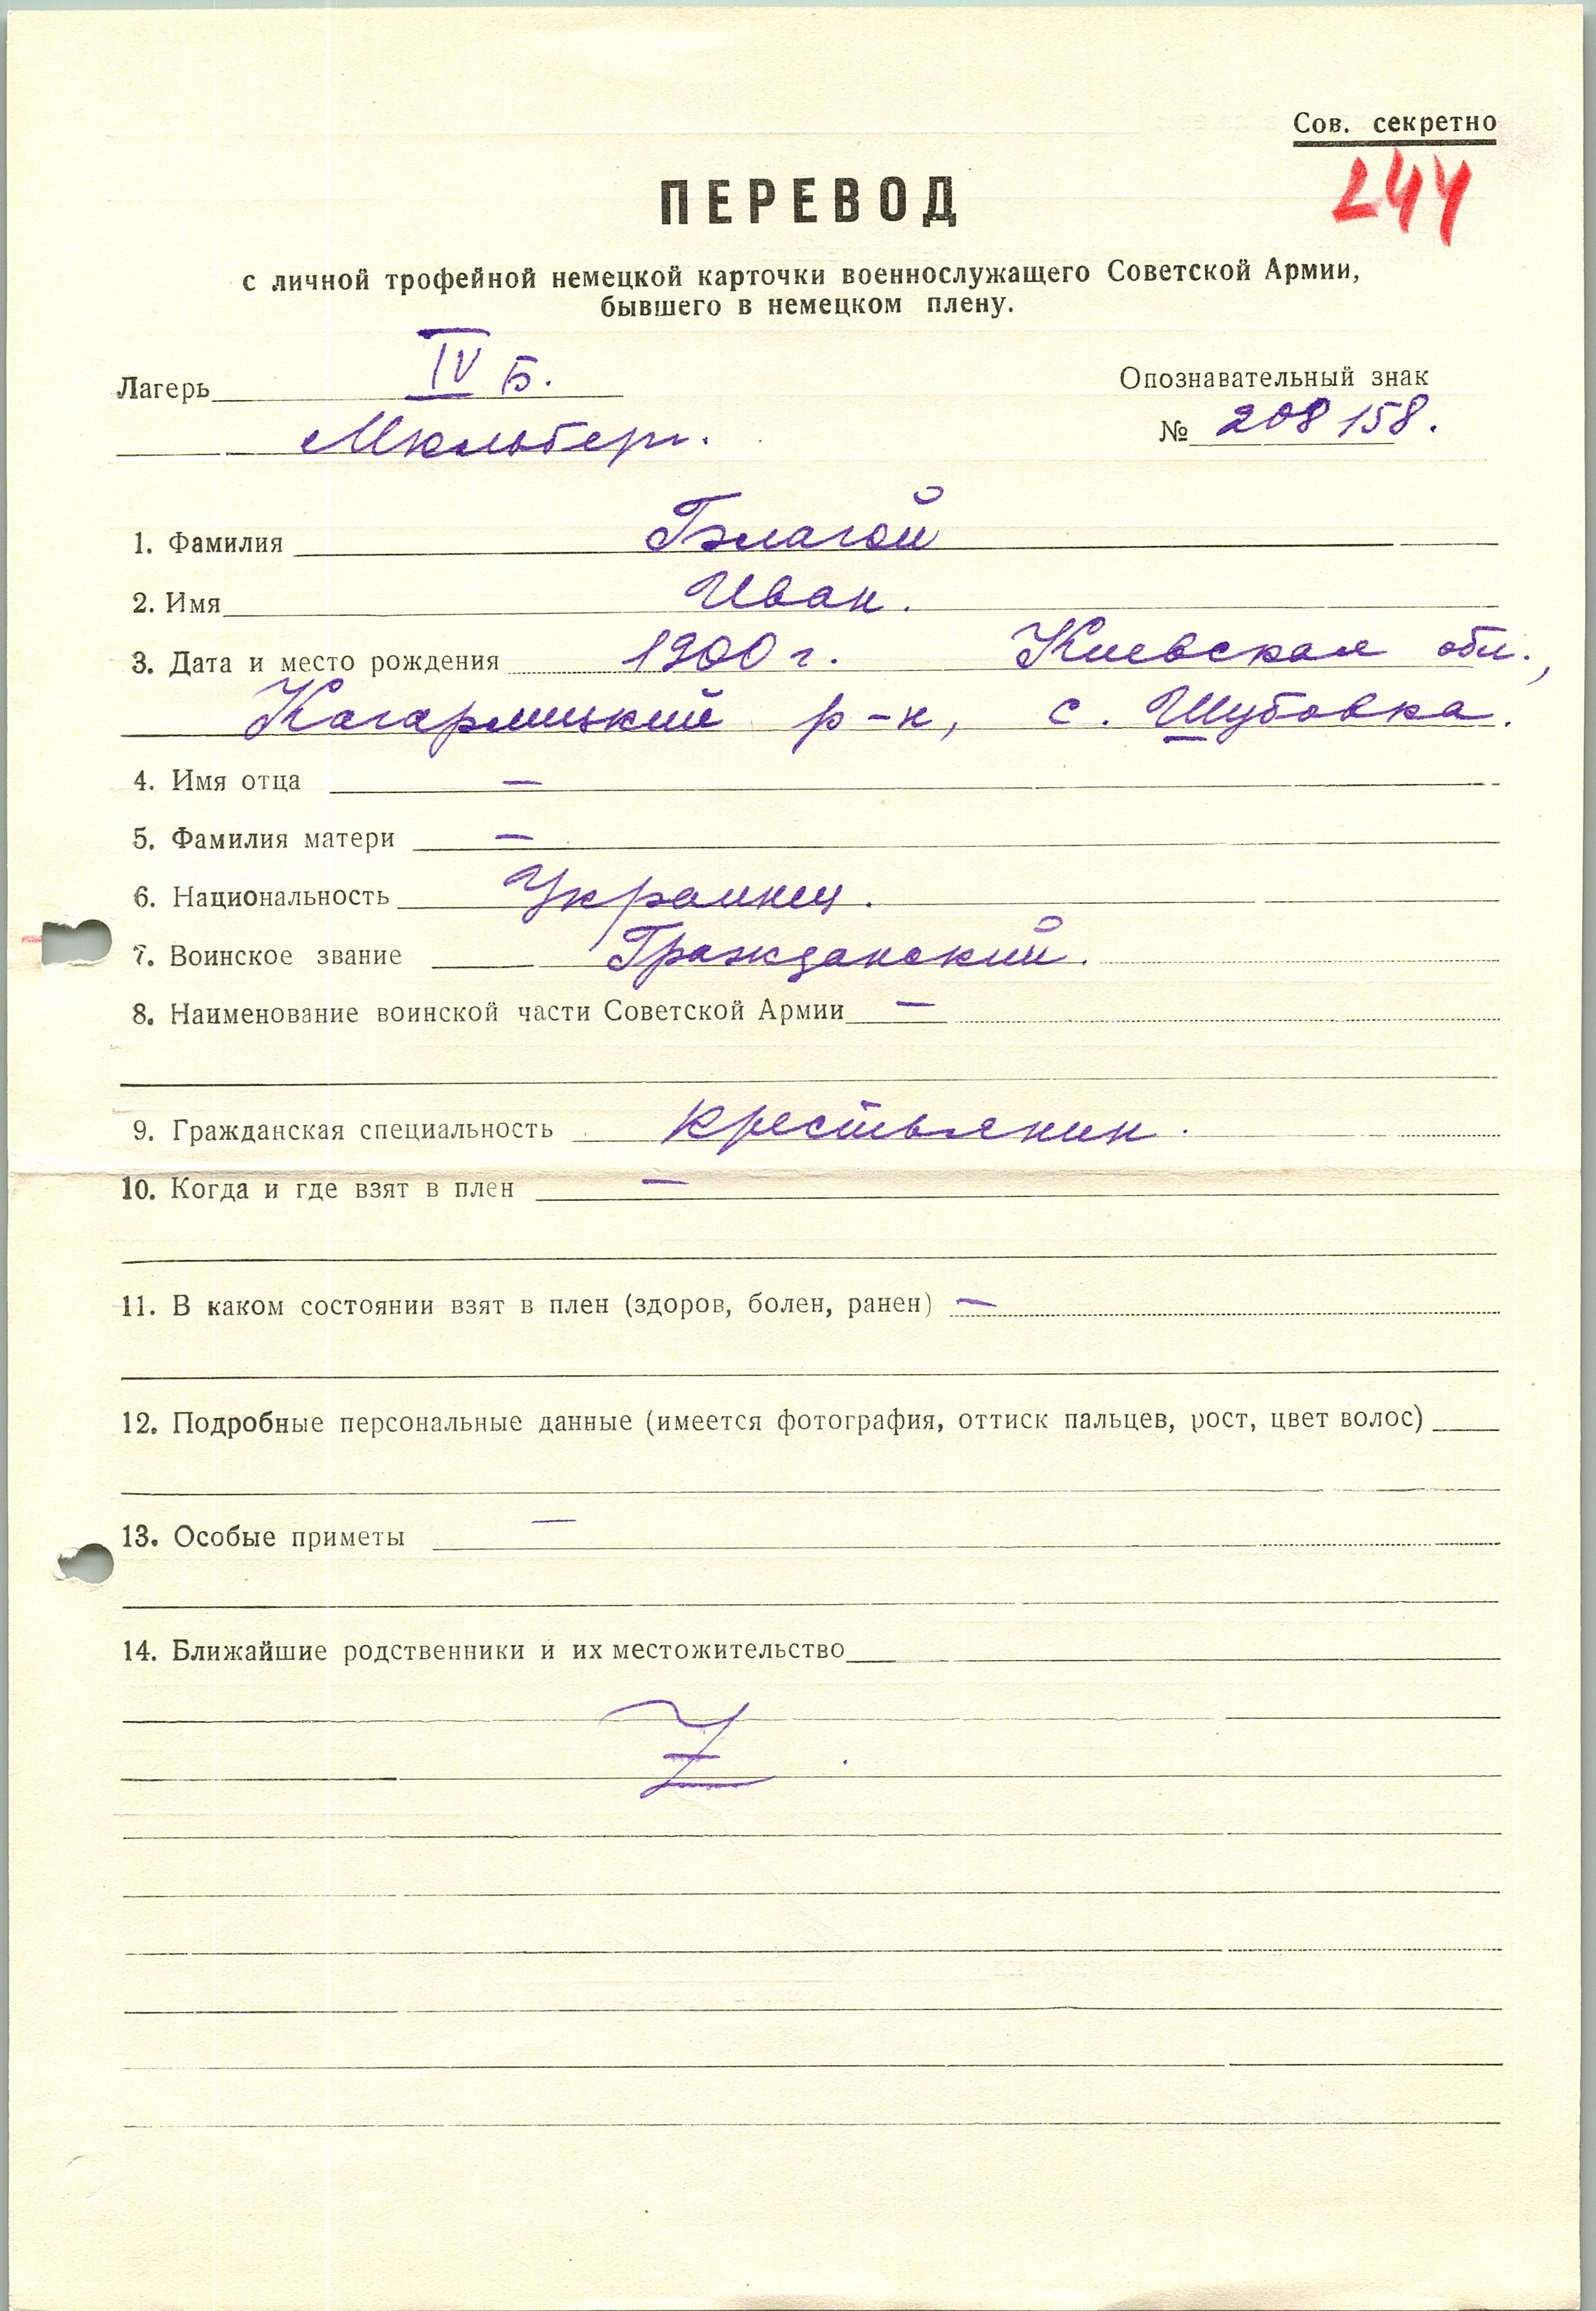 Сов. секретно
244
ПЕРЕВОД
с личной трофейной немецкой карточки военнослужащего Советской Армии,
бывшего в немецком плену.
Лагерь IV Б.
Опознавательный знак
Мюльберг.
№ 208158.
1. Фамилия Гэлагой
2. Имя Иван.
3. Дата и место рождения 1900 г. Киевская обл.,
Кагарлицкий р-н, с. Шубовка.
4. Имя отца —
5. Фамилия матери —
6. Национальность Украинец.
7. Воинское звание Гражданский.
8. Наименование воинской части Советской Армии —
9. Гражданская специальность крестьянин.
10. Когда и где взят в плен —
11. В каком состоянии взят в плен (здоров, болен, ранен) —
12. Подробные персональные данные (имеется фотография, оттиск пальцев, рост, цвет волос)
13. Особые приметы —
14. Ближайшие родственники и их местожительство